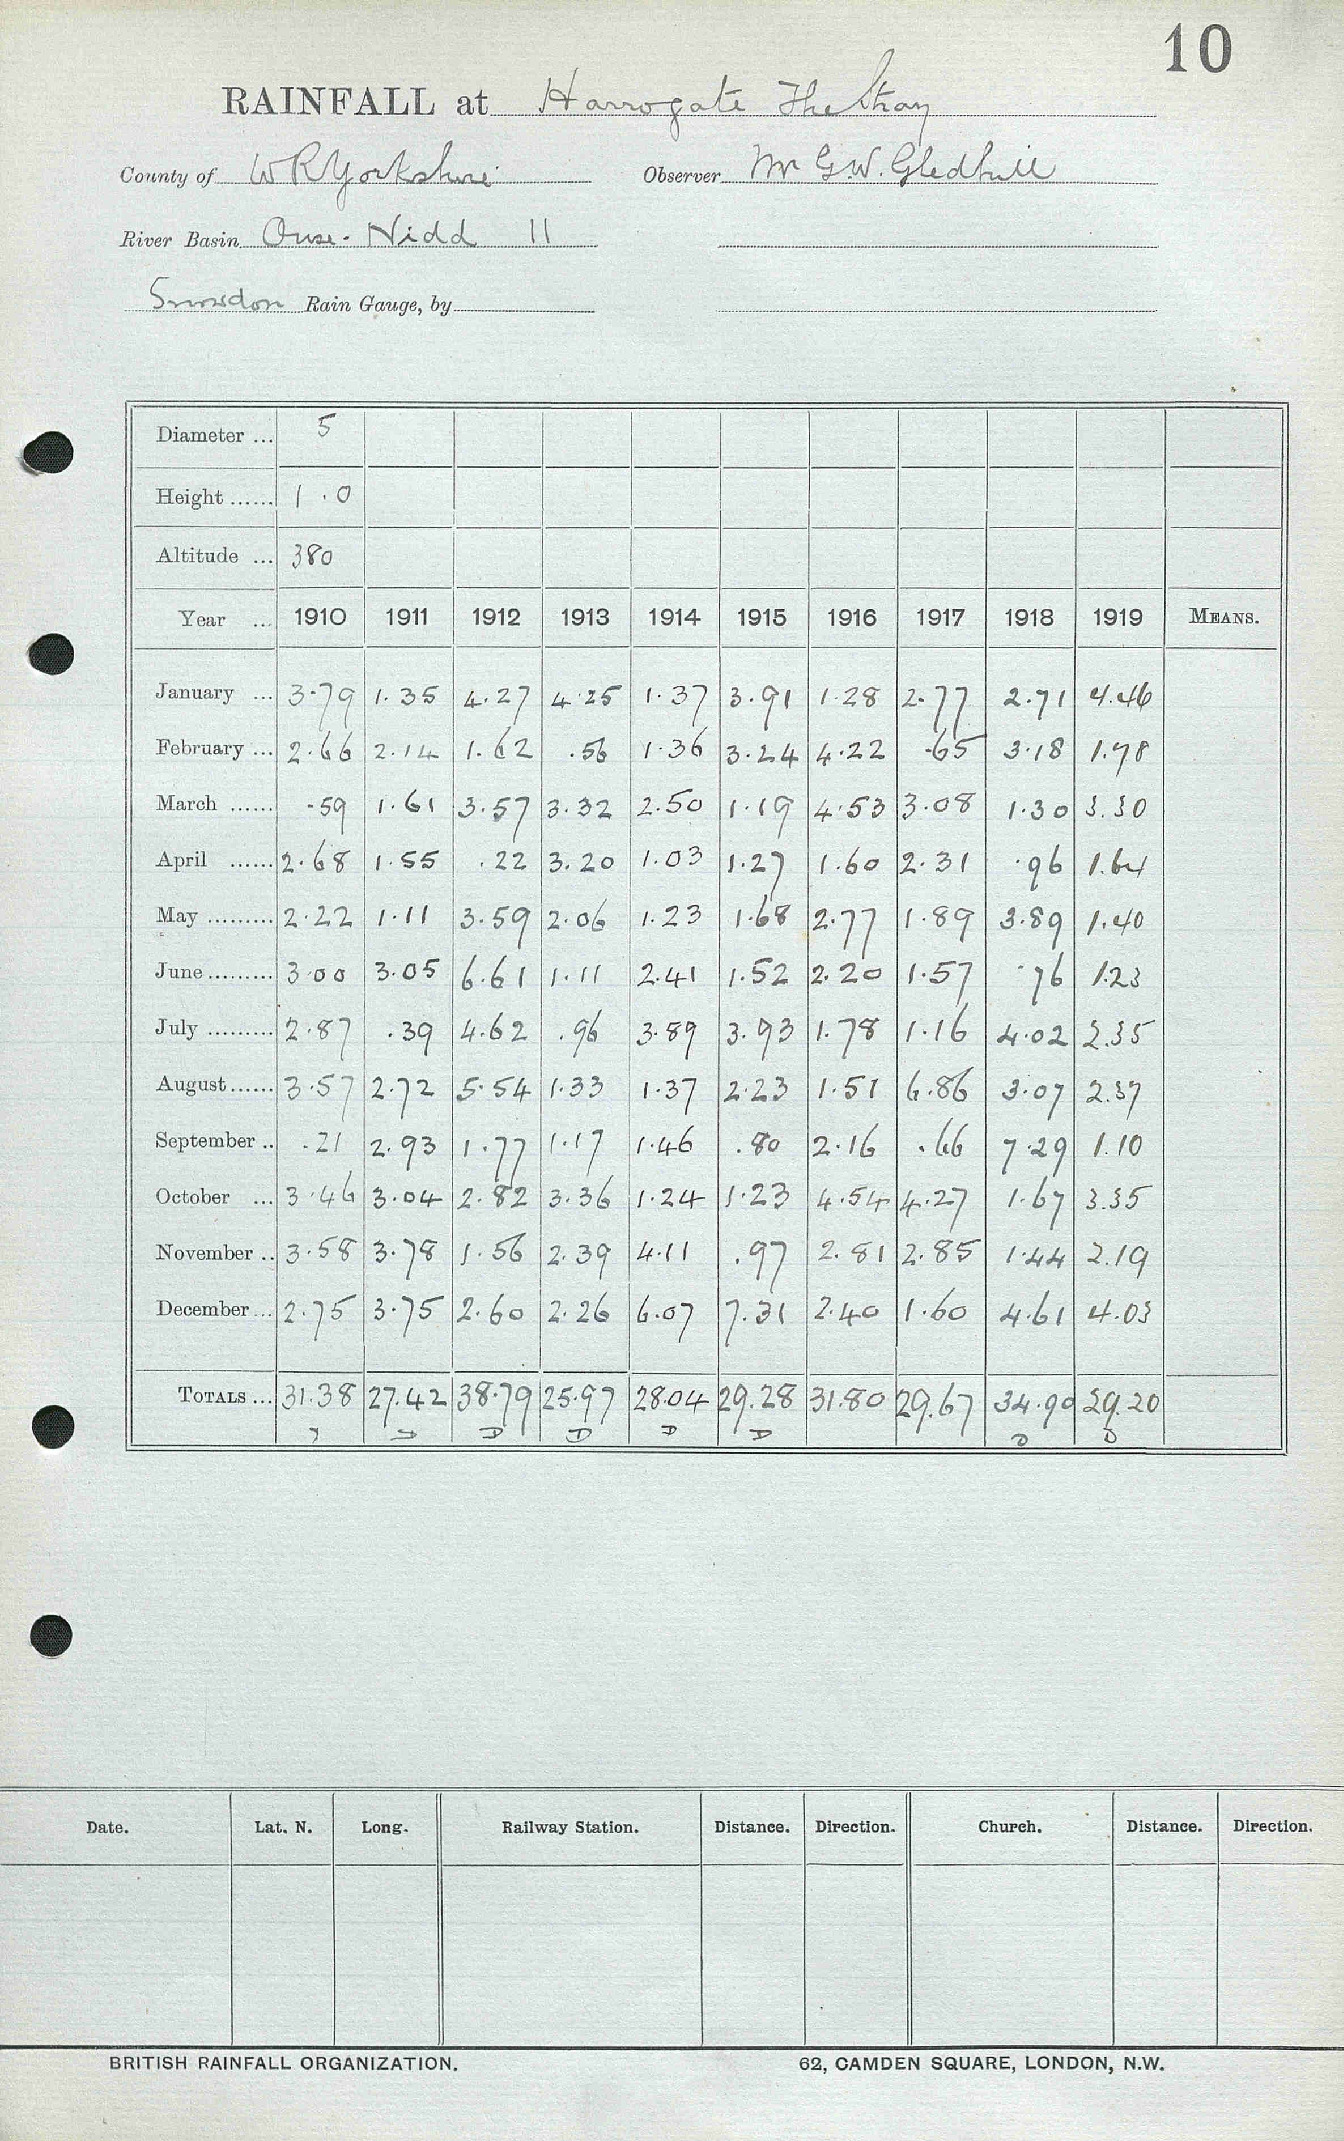 10
RAINFALL at Harrogate The Stray
County of W R Yorkshire Observer Mr G.W. Gledhill
River Basin Ouse - Nidd 11
Snowdon Rain Gauge, by
Diameter ... 5
Height ...... 1.0
Altitude ... 380
Year ... 1910 1911 1912 1913 1914 1915 1916 1917 1918 1919 MEANS.
January ... 3.79 1.35 4.27 4.25 1.37 3.91 1.28 2.77 2.71 4.46
February ... 2.66 2.14 1.62 .56 1.36 3.24 4.22 .65 3.18 1.78
March ...... .59 1.61 3.57 3.32 2.50 1.19 4.53 3.08 1.30 3.30
April ...... 2.68 1.55 .22 3.20 1.03 1.27 1.60 2.31 .96 1.64
May ......... 2.22 1.11 3.59 2.06 1.23 1.68 2.77 1.89 3.89 1.40
June ......... 3.00 3.05 6.61 1.11 2.41 1.52 2.20 1.57 .76 1.23
July ......... 2.87 .39 4.62 .96 3.89 3.93 1.78 1.16 4.02 2.35
August ...... 3.57 2.72 5.54 1.33 1.37 2.23 1.51 6.86 3.07 2.37
September .. .21 2.93 1.77 1.17 1.46 .80 2.16 .66 7.29 1.10
October ... 3.46 3.04 2.82 3.36 1.24 1.23 4.54 4.27 1.67 3.35
November .. 3.58 3.78 1.56 2.39 4.11 .97 2.81 2.85 1.44 2.19
December ... 2.75 3.75 2.60 2.26 6.07 7.31 2.40 1.60 4.61 4.03
TOTALS ... 31.38 27.42 38.79 25.97 28.04 29.28 31.80 29.67 34.90 29.20
Date. Lat. N. Long. Railway Station. Distance. Direction. Church. Distance. Direction.
BRITISH RAINFALL ORGANIZATION. 62, CAMDEN SQUARE, LONDON, N.W.